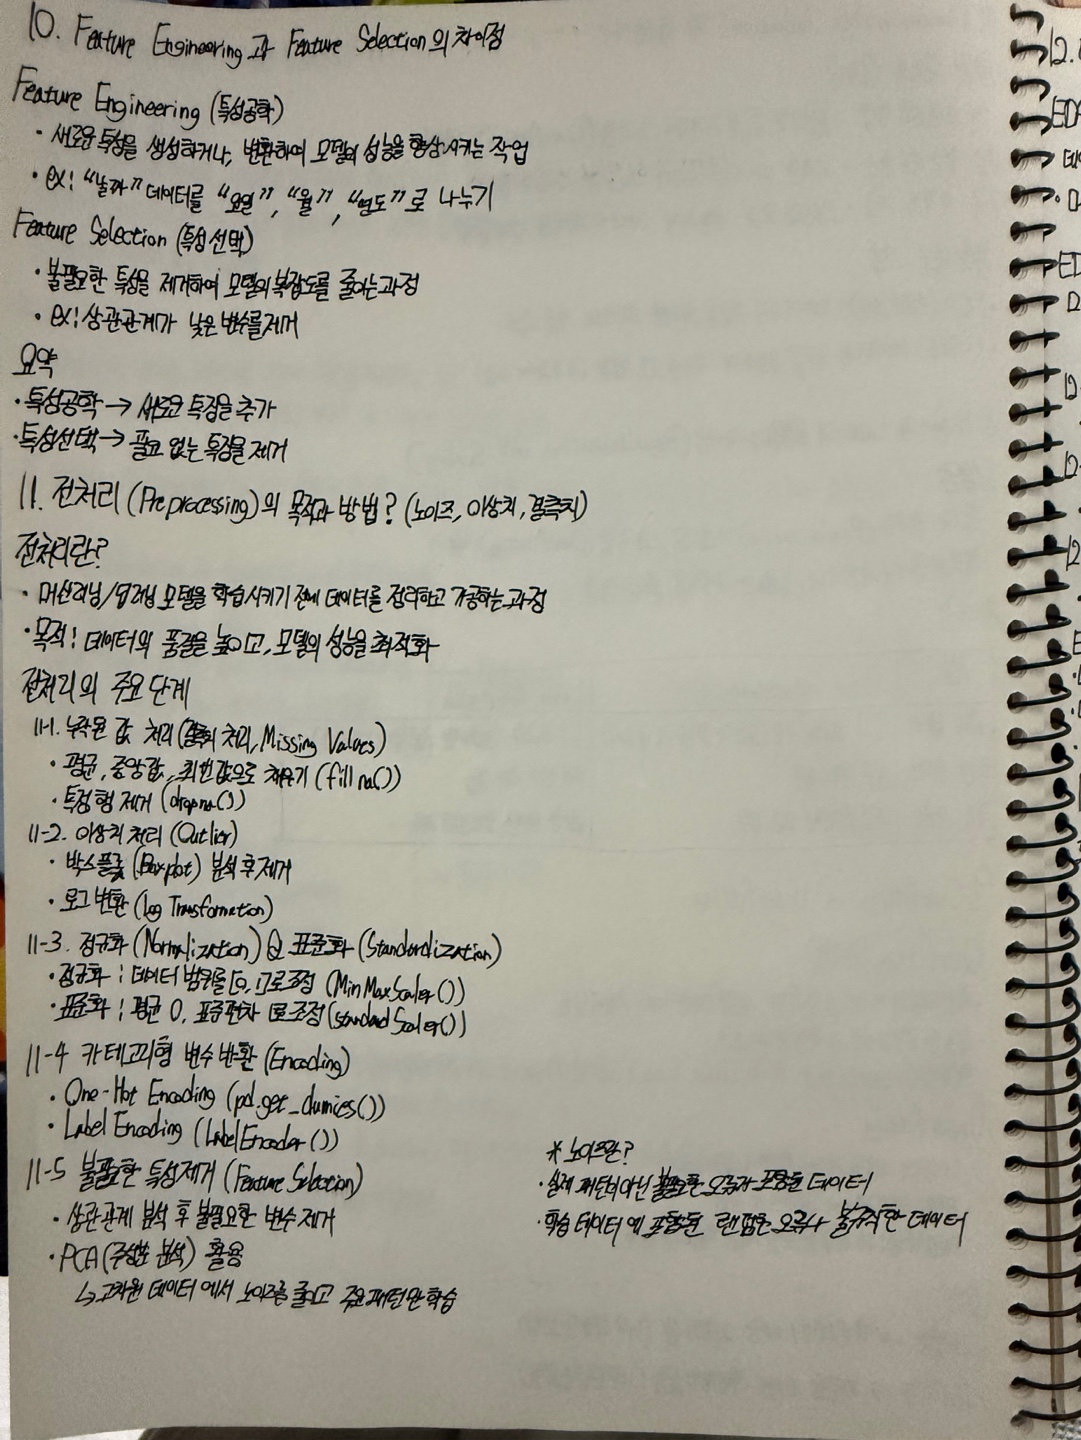 10. Feature Engineering과 Feature Selection의 차이점
Feature Engineering (특성공학)
· 새로운 특성을 생성하거나, 변환하여 모델의 성능을 향상시키는 작업
· ex: "날짜" 데이터를 "요일", "월", "연도"로 나누기
Feature Selection (특성 선택)
· 불필요한 특성을 제거하여 모델의 복잡도를 줄이는 과정
· ex: 상관관계가 낮은 변수를 제거
요약
· 특성공학 → 새로운 특징을 추가
· 특성선택 → 필요 없는 특징을 제거
11. 전처리 (Preprocessing)의 목적과 방법? (노이즈, 이상치, 결측치)
전처리란?
· 머신러닝/딥러닝 모델을 학습시키기 전에 데이터를 정리하고 가공하는 과정
· 목적: 데이터의 품질을 높이고, 모델의 성능을 최적화
전처리의 주요 단계
11-1. 누락된 값 처리 (결측치 처리, Missing Values)
· 평균, 중앙값, 최빈값으로 채우기 (fillna())
· 특정 행 제거 (dropna())
11-2. 이상치 처리 (Outlier)
· 박스플롯 (Boxplot) 분석 후 제거
· 로그 변환 (Log Transformation)
11-3. 정규화 (Normalization) & 표준화 (Standardization)
· 정규화: 데이터 범위를 [0, 1]로 조정 (MinMaxScaler())
· 표준화: 평균 0, 표준편차 1로 조정 (StandardScaler())
11-4 카테고리형 변수 변환 (Encoding)
· One-Hot Encoding (pd.get_dumies())
· Label Encoding (LabelEncoder())
11-5 불필요한 특성 제거 (Feature Selection)
· 상관관계 분석 후 불필요한 변수 제거
· PCA (주성분 분석) 활용
↳ 고차원 데이터에서 노이즈를 줄이고 주요 패턴만 학습
* 노이즈란?
· 실제 패턴이 아닌 불필요한 오류가 포함된 데이터
· 학습 데이터에 포함된 랜덤한 오류나 불규칙한 데이터